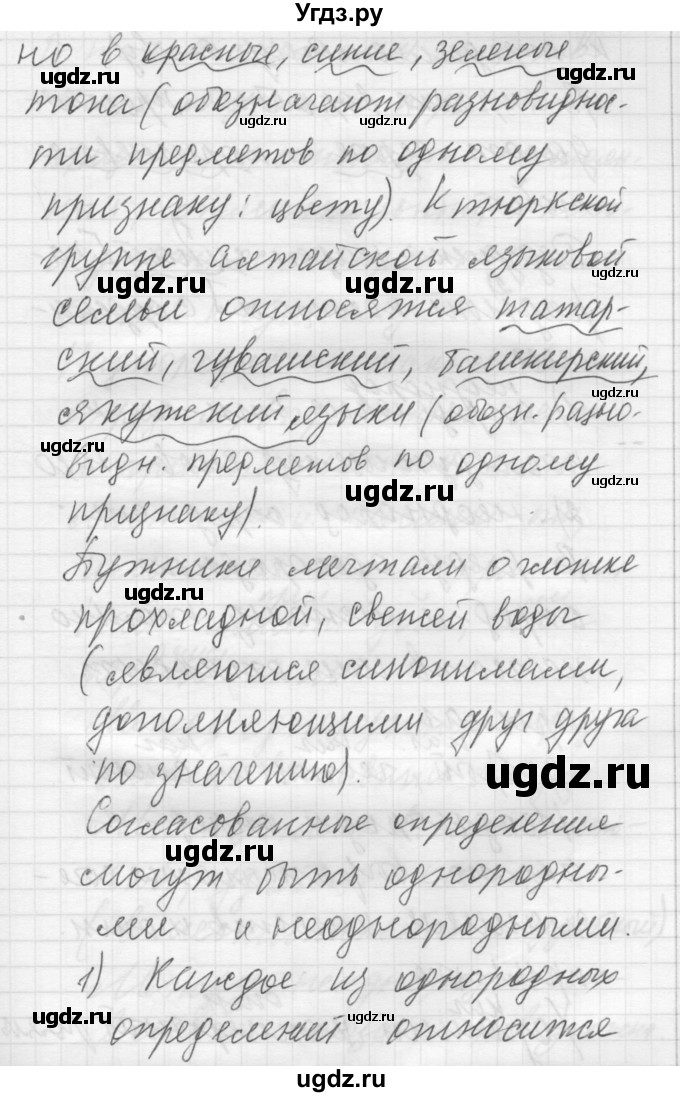 Угдз.ру
но в красные, синие, зеленые
тона (обозначают разновиднос-
ти предметов по одному
признаку: цвету). К тюркской
группе алтайской языковой
семьи относятся татар-
ский, чувашский, башкирский,
якутский языки (обозн. разно-
видн. предметов по одному
признаку).
Путники мечтали о глотке
прохладной, свежей воды
(являются синонимами,
дополняющими друг друга
по значению).
Согласованные определения
могут быть однородны-
ми и неоднородными.
1) Каждое из однородных
определений относится
ugdz.ru